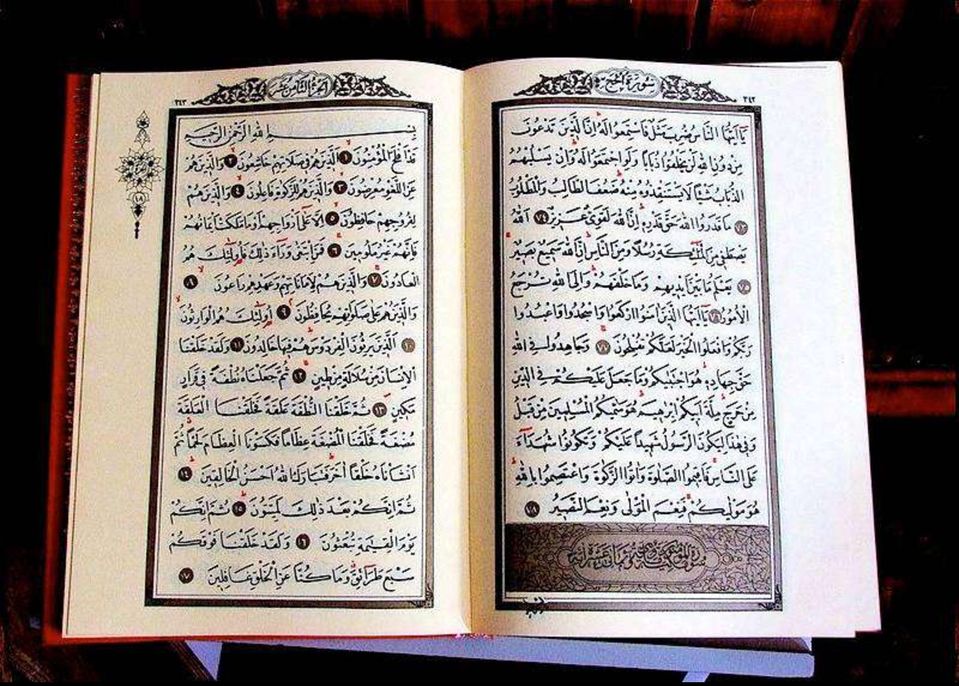 سورة الحج
٣٤٢
يَا أَيُّهَا النَّاسُ ضُرِبَ مَثَلٌ فَاسْتَمِعُوا لَهُ إِنَّ الَّذِينَ تَدْعُونَ
مِنْ دُونِ اللهِ لَنْ يَخْلُقُوا ذُبَابًا وَلَوِ اجْتَمَعُوا لَهُ وَإِنْ يَسْلُبْهُمُ
الذُّبَابُ شَيْئًا لَا يَسْتَنْقِذُوهُ مِنْهُ ضَعُفَ الطَّالِبُ وَالْمَطْلُوبُ
٧٣ مَا قَدَرُوا اللهَ حَقَّ قَدْرِهِ إِنَّ اللهَ لَقَوِيٌّ عَزِيزٌ ٧٤ اَللهُ
يَصْطَفِي مِنَ الْمَلٰئِكَةِ رُسُلًا وَمِنَ النَّاسِ إِنَّ اللهَ سَمِيعٌ بَصِيرٌ
٧٥ يَعْلَمُ مَا بَيْنَ أَيْدِيهِمْ وَمَا خَلْفَهُمْ وَإِلَى اللهِ تُرْجَعُ
الْأُمُورُ ٧٦ يَا أَيُّهَا الَّذِينَ آمَنُوا ارْكَعُوا وَاسْجُدُوا وَاعْبُدُوا
رَبَّكُمْ وَافْعَلُوا الْخَيْرَ لَعَلَّكُمْ تُفْلِحُونَ ٧٧ وَجَاهِدُوا فِي اللهِ
حَقَّ جِهَادِهِ هُوَ اجْتَبٰيكُمْ وَمَا جَعَلَ عَلَيْكُمْ فِي الدِّينِ
مِنْ حَرَجٍ مِلَّةَ أَبِيكُمْ إِبْرٰهِيمَ هُوَ سَمّٰيكُمُ الْمُسْلِمِينَ مِنْ قَبْلُ
وَفِي هٰذَا لِيَكُونَ الرَّسُولُ شَهِيدًا عَلَيْكُمْ وَتَكُونُوا شُهَدَاءَ
عَلَى النَّاسِ فَأَقِيمُوا الصَّلٰوةَ وَآتُوا الزَّكٰوةَ وَاعْتَصِمُوا بِاللهِ
هُوَ مَوْلٰيكُمْ فَنِعْمَ الْمَوْلٰى وَنِعْمَ النَّصِيرُ ٧٨
الجزء الثامن عشر
٣٤٣
بِسْمِ اللهِ الرَّحْمٰنِ الرَّحِيمِ
قَدْ أَفْلَحَ الْمُؤْمِنُونَ ١ اَلَّذِينَ هُمْ فِي صَلَاتِهِمْ خَاشِعُونَ ٢ وَالَّذِينَ هُمْ
عَنِ اللَّغْوِ مُعْرِضُونَ ٣ وَالَّذِينَ هُمْ لِلزَّكٰوةِ فَاعِلُونَ ٤ وَالَّذِينَ هُمْ
لِفُرُوجِهِمْ حَافِظُونَ ٥ إِلَّا عَلٰى أَزْوَاجِهِمْ أَوْ مَا مَلَكَتْ أَيْمَانُهُمْ
فَإِنَّهُمْ غَيْرُ مَلُومِينَ ٦ فَمَنِ ابْتَغٰى وَرَاءَ ذٰلِكَ فَأُولٰئِكَ هُمُ
الْعَادُونَ ٧ وَالَّذِينَ هُمْ لِأَمَانَاتِهِمْ وَعَهْدِهِمْ رَاعُونَ ٨
وَالَّذِينَ هُمْ عَلٰى صَلَوَاتِهِمْ يُحَافِظُونَ ٩ أُولٰئِكَ هُمُ الْوَارِثُونَ
١٠ اَلَّذِينَ يَرِثُونَ الْفِرْدَوْسَ هُمْ فِيهَا خَالِدُونَ ١١ وَلَقَدْ خَلَقْنَا
الْإِنْسَانَ مِنْ سُلَالَةٍ مِنْ طِينٍ ١٢ ثُمَّ جَعَلْنَاهُ نُطْفَةً فِي قَرَارٍ
مَكِينٍ ١٣ ثُمَّ خَلَقْنَا النُّطْفَةَ عَلَقَةً فَخَلَقْنَا الْعَلَقَةَ
مُضْغَةً فَخَلَقْنَا الْمُضْغَةَ عِظَامًا فَكَسَوْنَا الْعِظَامَ لَحْمًا ثُمَّ
أَنْشَأْنَاهُ خَلْقًا آخَرَ فَتَبَارَكَ اللهُ أَحْسَنُ الْخَالِقِينَ ١٤
ثُمَّ إِنَّكُمْ بَعْدَ ذٰلِكَ لَمَيِّتُونَ ١٥ ثُمَّ إِنَّكُمْ
يَوْمَ الْقِيٰمَةِ تُبْعَثُونَ ١٦ وَلَقَدْ خَلَقْنَا فَوْقَكُمْ
سَبْعَ طَرَائِقَ وَمَا كُنَّا عَنِ الْخَلْقِ غَافِلِينَ ١٧
١٨